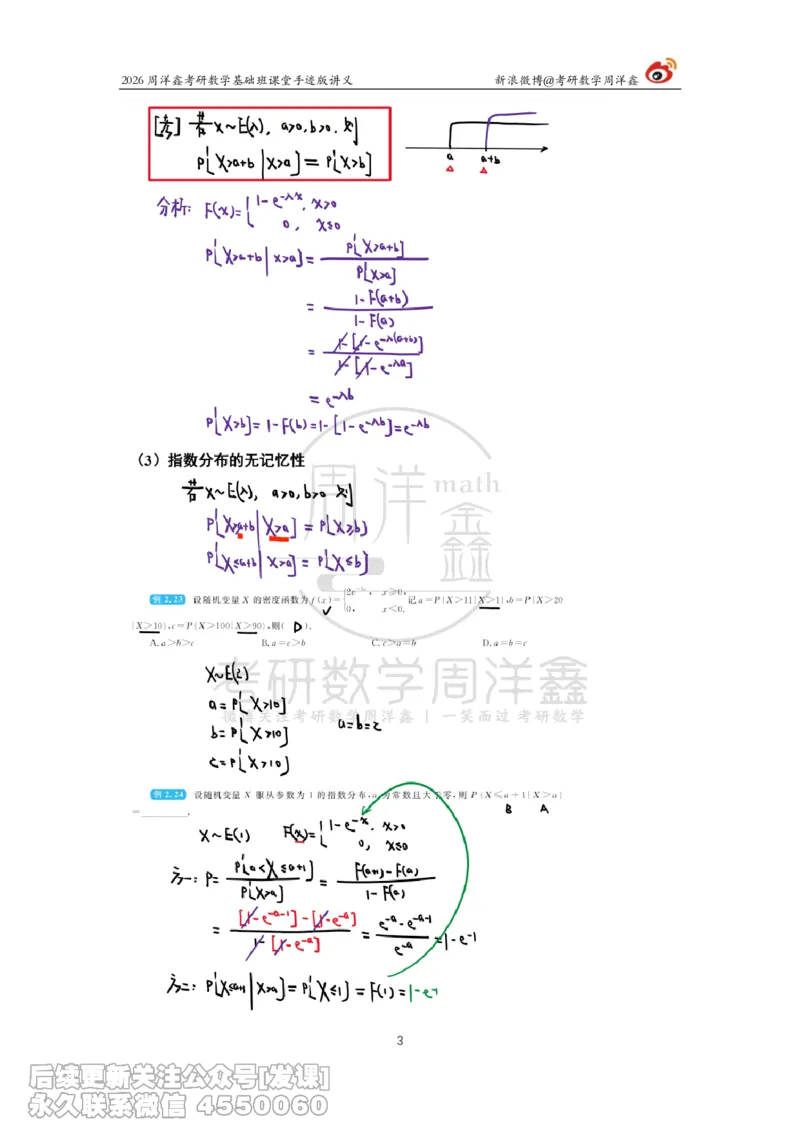 2026 周洋鑫考研数学基础班课堂手迹版讲义 新浪微博@考研数学周洋鑫
若X~E(λ), a>0, b>0. 则
P{X>a+b|X>a}=P{X>b}
a a+b
分析: F(x)={1-e^{-λx}, x>0
0, x≤0
P{X>a+b|X>a}=P{X>a+b}/P{X>a}
=(1-F(a+b))/(1-F(a))
=(1-[1-e^{-λ(a+b)}])/(1-[1-e^{-λa}])
=e^{-λb}
P{X>b}=1-F(b)=1-[1-e^{-λb}]=e^{-λb}
（3）指数分布的无记忆性
若X~E(λ), a>0, b>0 则
P{X>a+b|X>a}=P{X>b}
P{X≤a+b|X>a}=P{X≤b}
例 2.23 设随机变量 X 的密度函数为 f(x)={2e^{-2x}, x≥0, 0, x<0. 记 a=P{X>11|X>1},b=P{X>20
|X>10},c=P{X>100|X>90},则( D ).
A. a>b>c B. a=c>b C. c>a=b D. a=b=c
X~E(2)
a=P{X>10}
b=P{X>10} a=b=c
c=P{X>10}
周洋鑫 math
考研数学周洋鑫
微博关注考研数学周洋鑫 | 一笑而过 考研数学
例 2.24 设随机变量 X 服从参数为 1 的指数分布,a 为常数且大于零,则 P{X≤a+1|X>a}
=________. B A
X~E(1) F(x)={1-e^{-x}, x>0
0, x≤0
方一: P=P{a<X≤a+1}/P{X>a}=(F(a+1)-F(a))/(1-F(a))
=([1-e^{-a-1}]-[1-e^{-a}])/(1-[1-e^{-a}])=(e^{-a}-e^{-a-1})/e^{-a}=1-e^{-1}
方二: P{X≤a+1|X>a}=P{X≤1}=F(1)=1-e^{-1}
3
后续更新关注公众号[发课]
永久联系微信 4550060